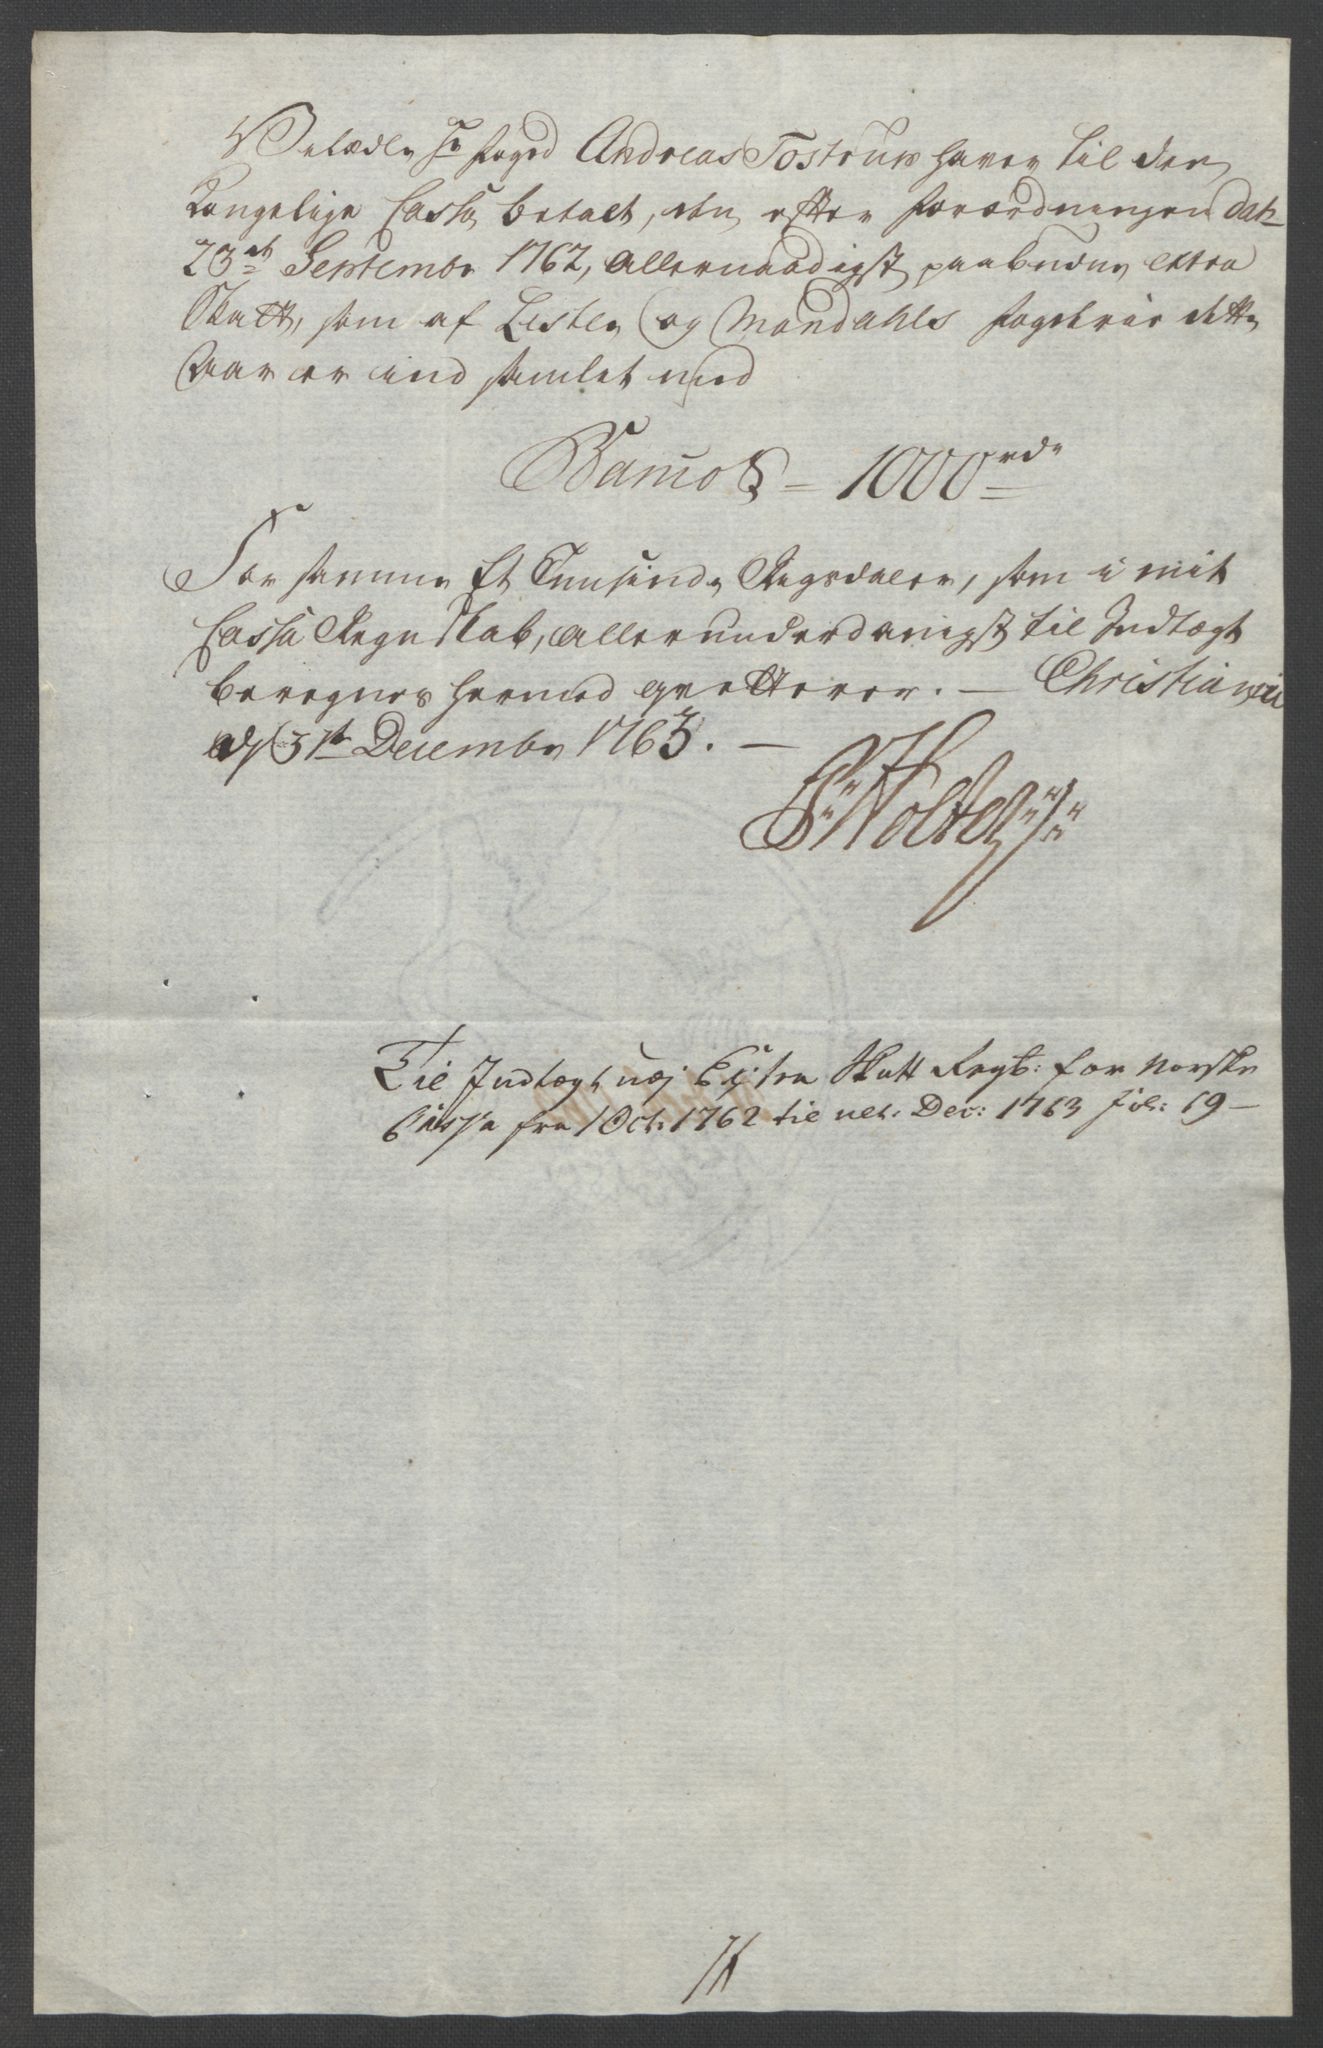 Velædle Hr Foged Andreas Tostrup haver til den
Kongelige Cassa betalt, den efter Forordningen dat
23de September 1762, allernaadigst paabudne extra
Skatt, som af Lister og Mandahls Fogderie dette
Aar er ind samlet med
Banco S = 1000 rdr
For samme Et Tuusinde Rigsdaler, som i mit
Cassa Regnskab, allerunderdanigst til Indtægt
beregnes hermed qvitterer. — Christiania
d 31te December 1763. —
P: Holter
Til Indtægt udj Extra Skatt Regsk: for Norske
Cassa fra 1 Oct: 1762 til ult: Dec: 1763 fol: 19 —